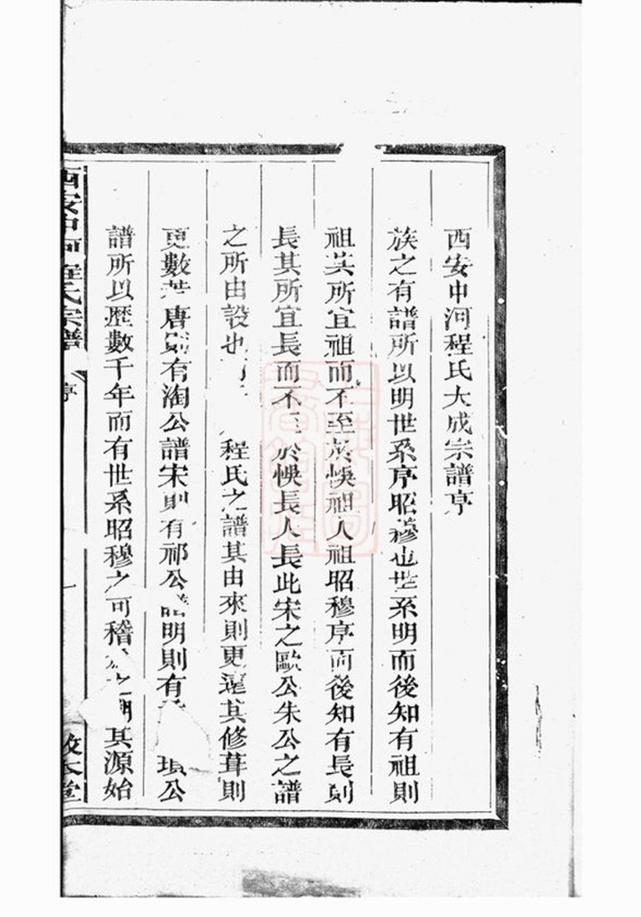 西安中河程氏大成宗譜序
族之有譜所以明世系序昭穆也世系明而後知有祖則
祖其所宜祖而不至於悞祖人祖昭穆序而後知有長則
長其所宜長而不至於悞長人長此宋之歐公朱公之譜
之所由設也 程氏之譜其由來則更遠其修葺則
更數 唐則有淘公譜宋則有祁公譜明則有 公
譜所以歷數千年而有世系昭穆之可稽 其源始
西安中河程氏宗譜
序
一
敘本堂